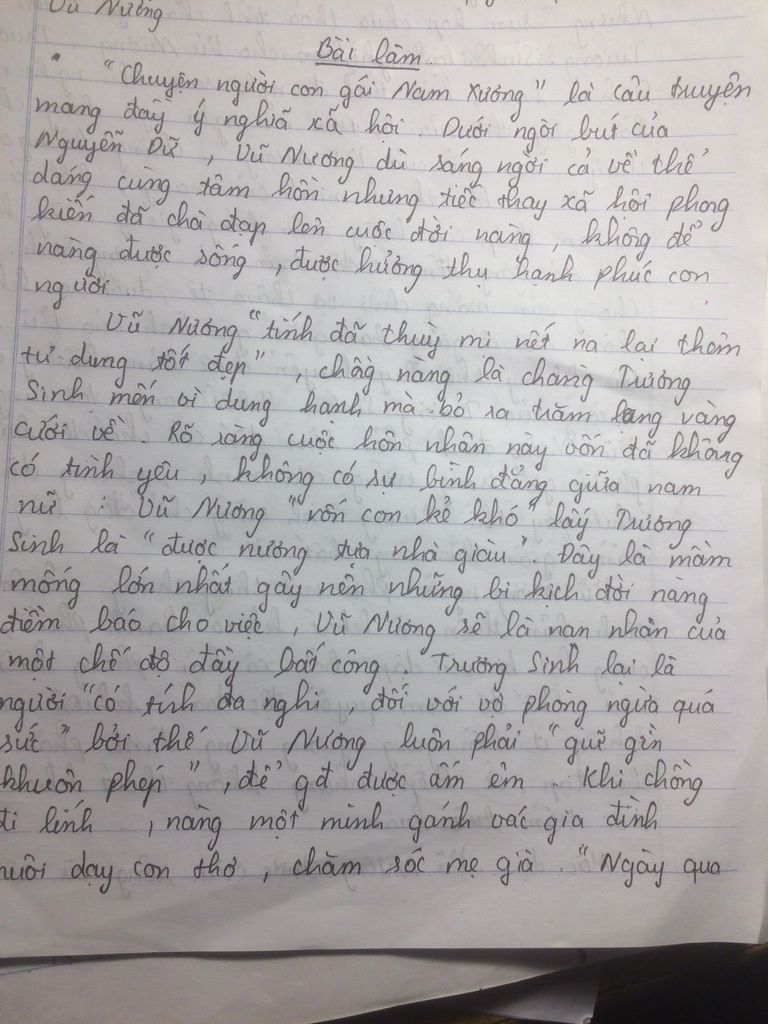 Vũ Nương
Bài làm.
"Chuyện người con gái Nam Xương" là câu truyện
mang đầy ý nghĩa xã hội. Dưới ngòi bút của
Nguyễn Dữ, Vũ Nương dù sáng ngời cả về thể
dáng cùng tâm hồn nhưng tiếc thay xã hội phong
kiến đã chà đạp lên cuộc đời nàng, không để
nàng được sống, được hưởng thụ hạnh phúc con
người.
Vũ Nương "tính đã thuỳ mị nết na lại thêm
tư dung tốt đẹp", chồng nàng là chàng Trương
Sinh mến vì dung hạnh mà bỏ ra trăm lạng vàng
cưới về. Rõ ràng cuộc hôn nhân này vốn đã không
có tình yêu, không có sự bình đẳng giữa nam
nữ: Vũ Nương "vốn con kẻ khó" lấy Trương
Sinh là "được nương tựa nhà giàu". Đây là mầm
mống lớn nhất gây nên những bi kịch đời nàng
điềm báo cho việc, Vũ Nương sẽ là nạn nhân của
một chế độ đầy bất công. Trương Sinh lại là
người "có tính đa nghi, đối với vợ phòng ngừa quá
sức" bởi thế Vũ Nương luôn phải "giữ gìn
khuôn phép", để gđ được ấm êm. Khi chồng
đi lính, nàng một mình gánh vác gia đình
nuôi dạy con thơ, chăm sóc mẹ già. "Ngày qua